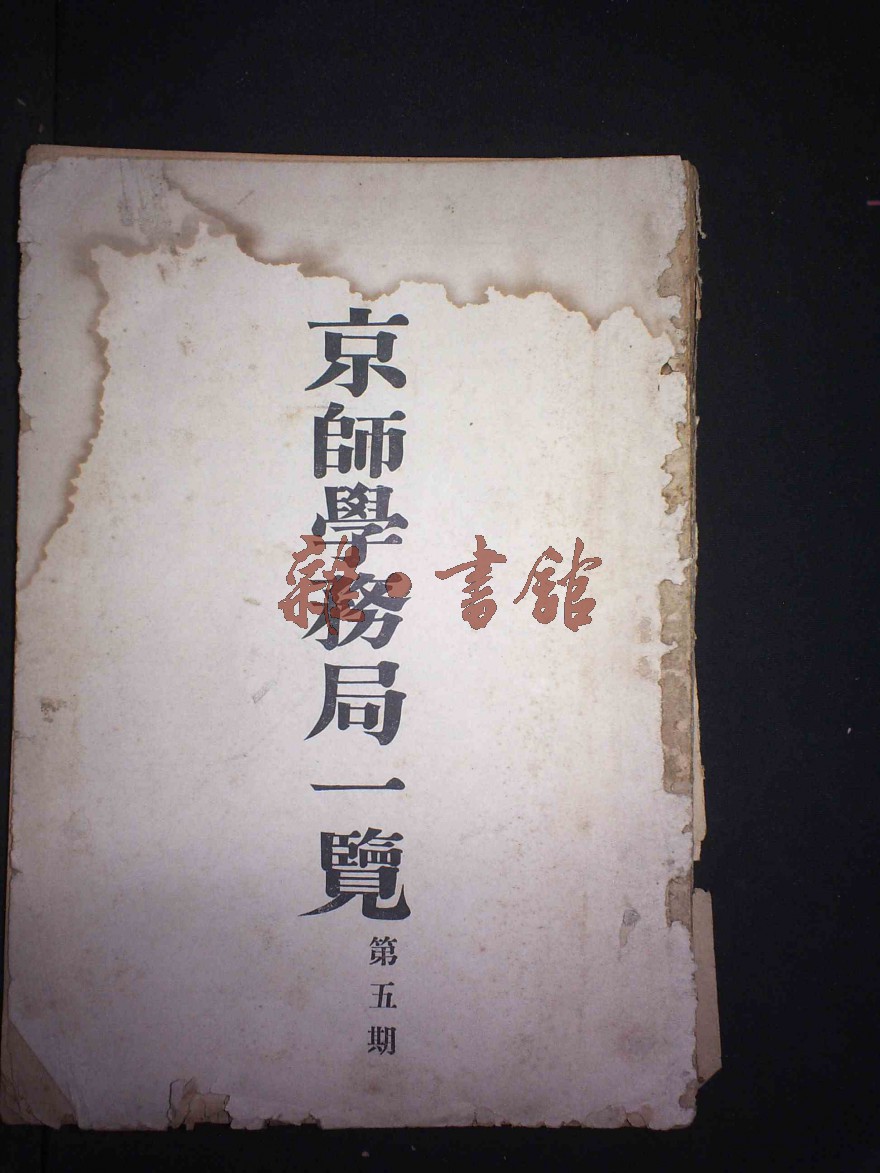 京師學務局一覽
第五期
雜·書館